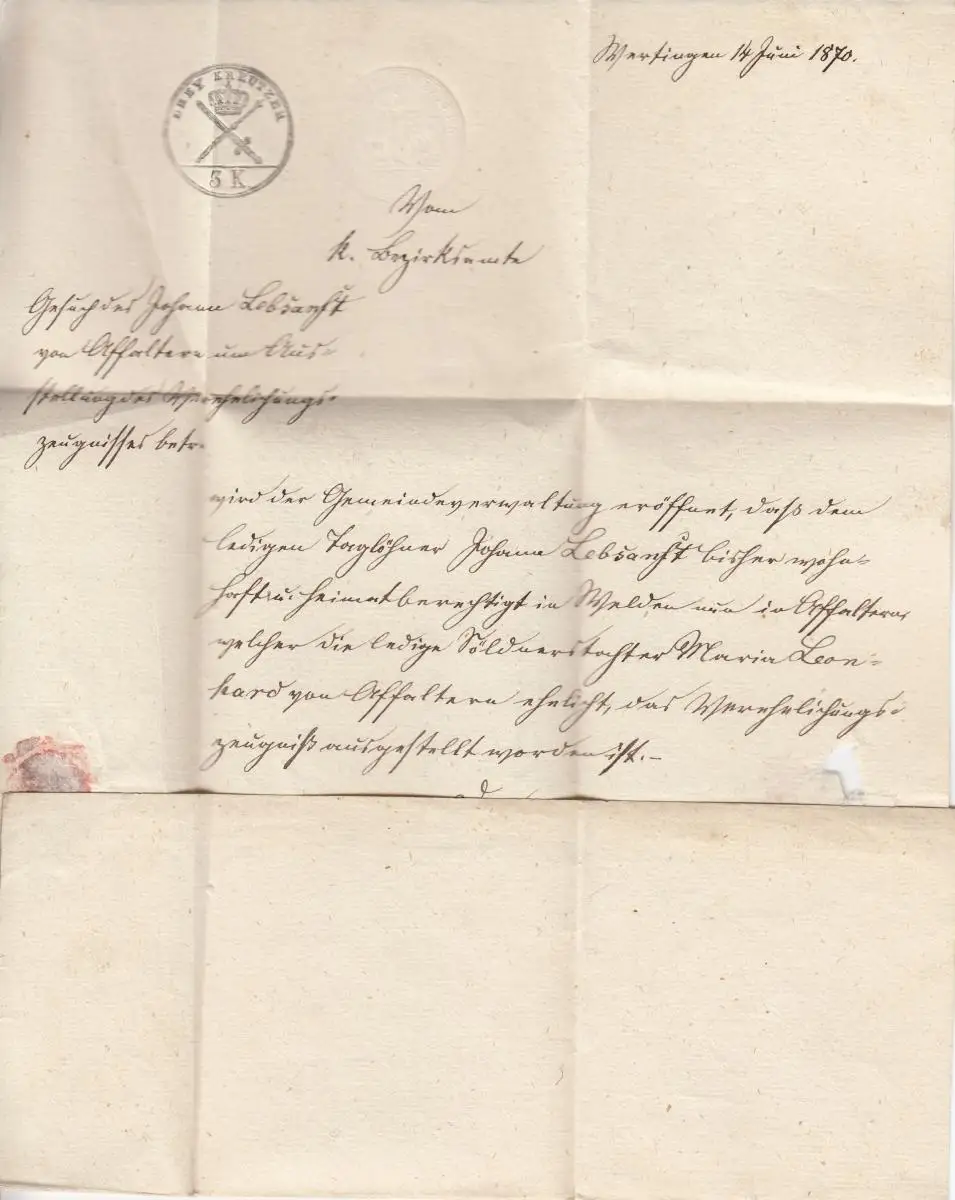 Wertingen 14 Juni 1870.
DREY KREUTZER
3 K
Vom
k. Bezirksamte
Gesuch des Johann Lebsanft
von Affaltern um Aus-
stellung des Verehelichungs-
zeugnisses betr.
wird der Gemeindeverwaltung eröffnet, daß dem
ledigen Taglöhner Johann Lebsanft bisher wohn-
haft u. heimatberechtigt in Welden nun in Affaltern,
welcher die ledige Söldnerstochter Maria Leon-
hard von Affaltern ehelicht, das Verehelichungs-
zeugniß ausgestellt worden ist.-